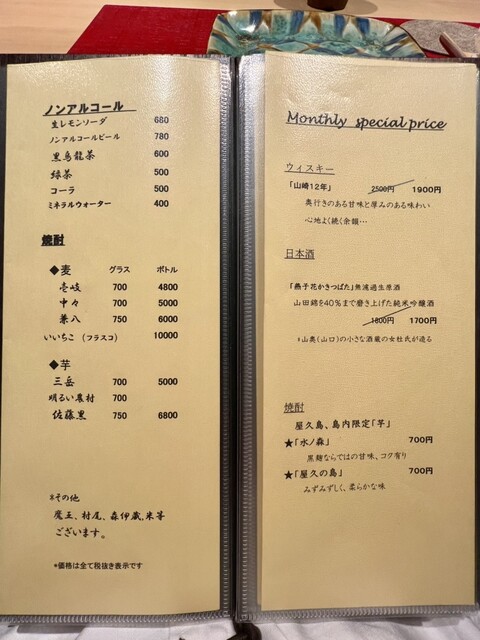 ノンアルコール
生レモンソーダ 680
ノンアルコールビール 780
黒烏龍茶 600
緑茶 500
コーラ 500
ミネラルウォーター 400
焼酎
◆麦 グラス ボトル
壱岐 700 4800
中々 700 5000
兼八 750 6000
いいちこ (フラスコ) 10000
◆芋
三岳 700 5000
明るい農村 700
佐藤黒 750 6800
*その他
魔王、村尾、森伊蔵、米等
ございます。
*価格は全て税抜き表示です
Monthly special price
ウィスキー
「山崎12年」 2500円 1900円
奥行きのある甘味と厚みのある味わい
心地よく続く余韻…
日本酒
「燕子花かきつばた」無濾過生原酒
山田錦を40%まで磨き上げた純米吟醸酒
1800円 1700円
*山奥(山口)の小さな酒蔵の女杜氏が造る
焼酎
屋久島、島内限定「芋」
★「水ノ森」 700円
黒麹ならではの甘味、コク有り
★「屋久の島」 700円
みずみずしく、柔らかな味